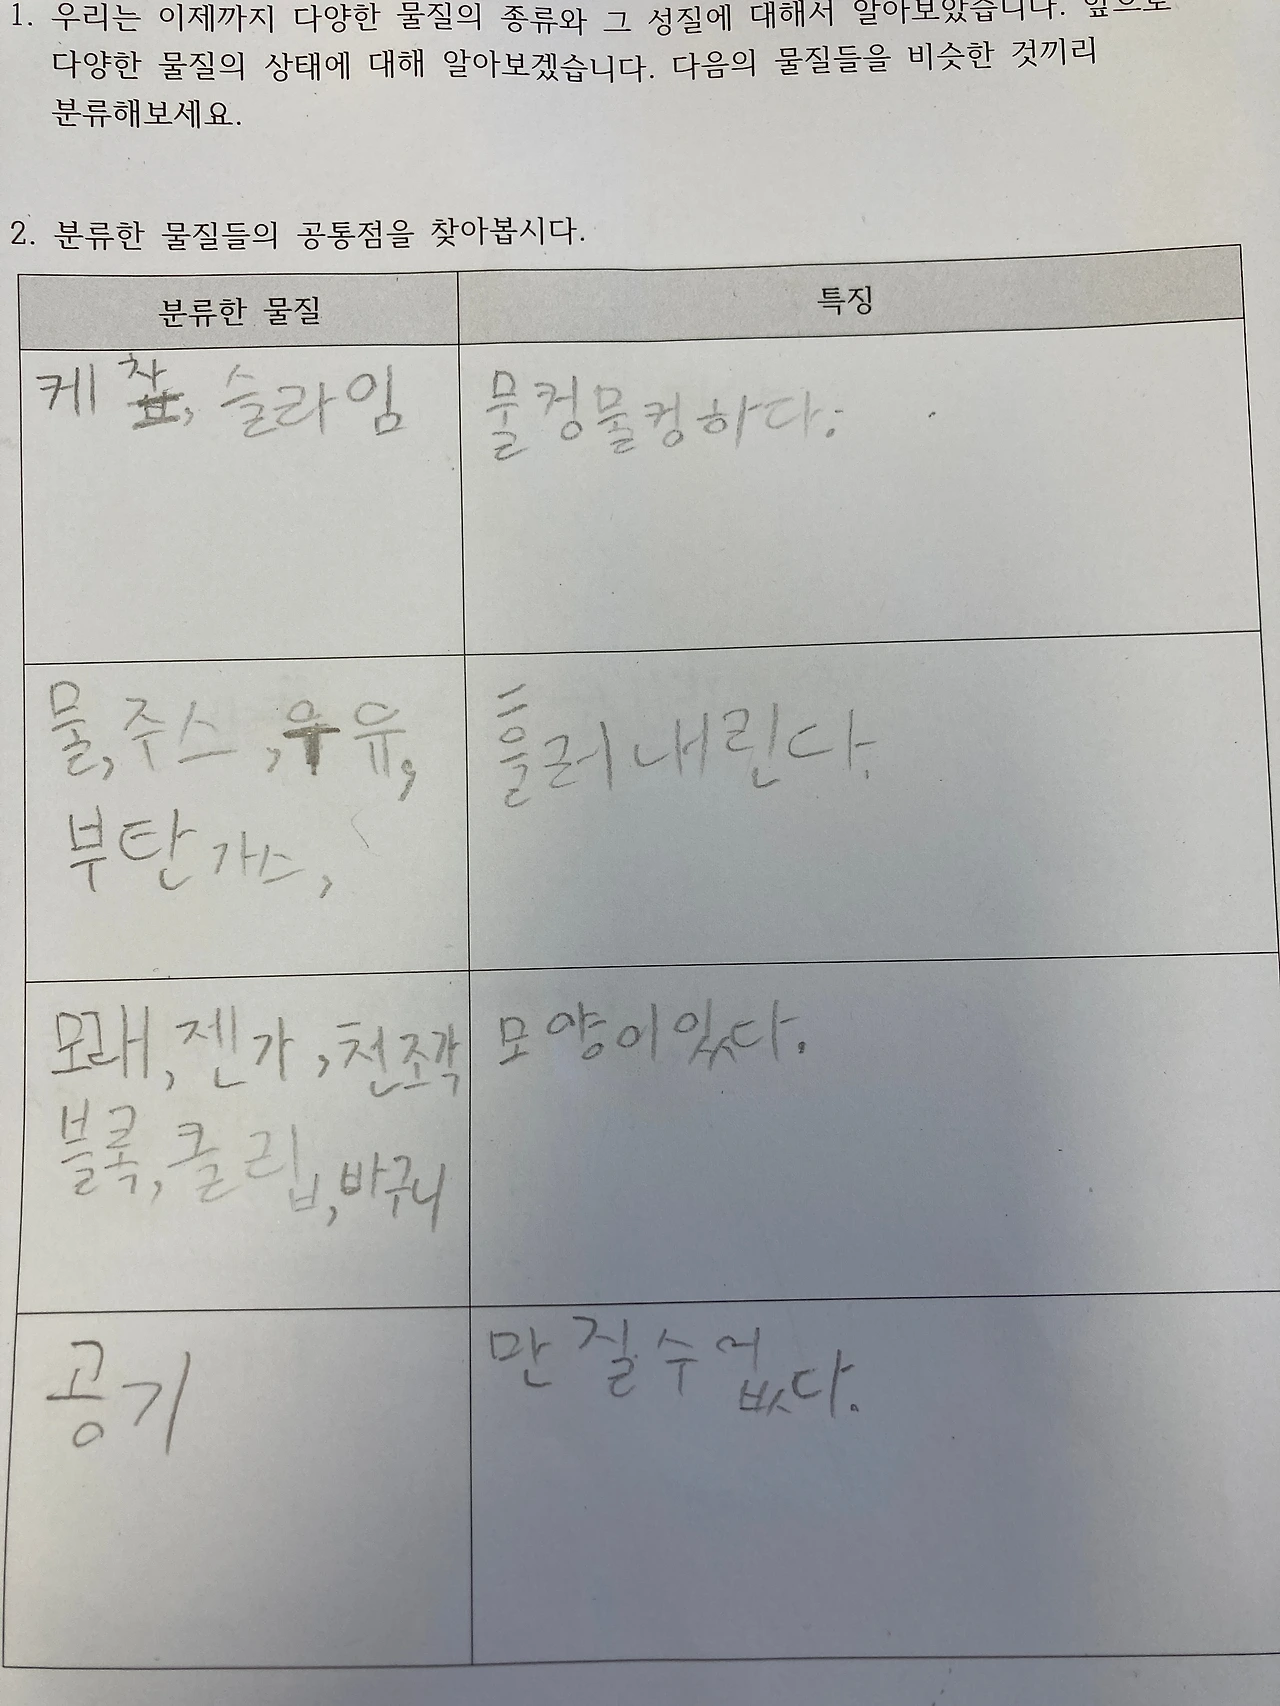 1. 우리는 이제까지 다양한 물질의 종류와 그 성질에 대해서 알아보았습니다. 앞으로
다양한 물질의 상태에 대해 알아보겠습니다. 다음의 물질들을 비슷한 것끼리
분류해보세요.
2. 분류한 물질들의 공통점을 찾아봅시다.
분류한 물질 특징
케찹, 슬라임 물컹물컹하다.
물, 주스, 우유, 흘러내린다.
부탄가스,
모래, 젠가, 천조각 모양이있다.
블록, 클립, 바구니
공기 만질수없다.